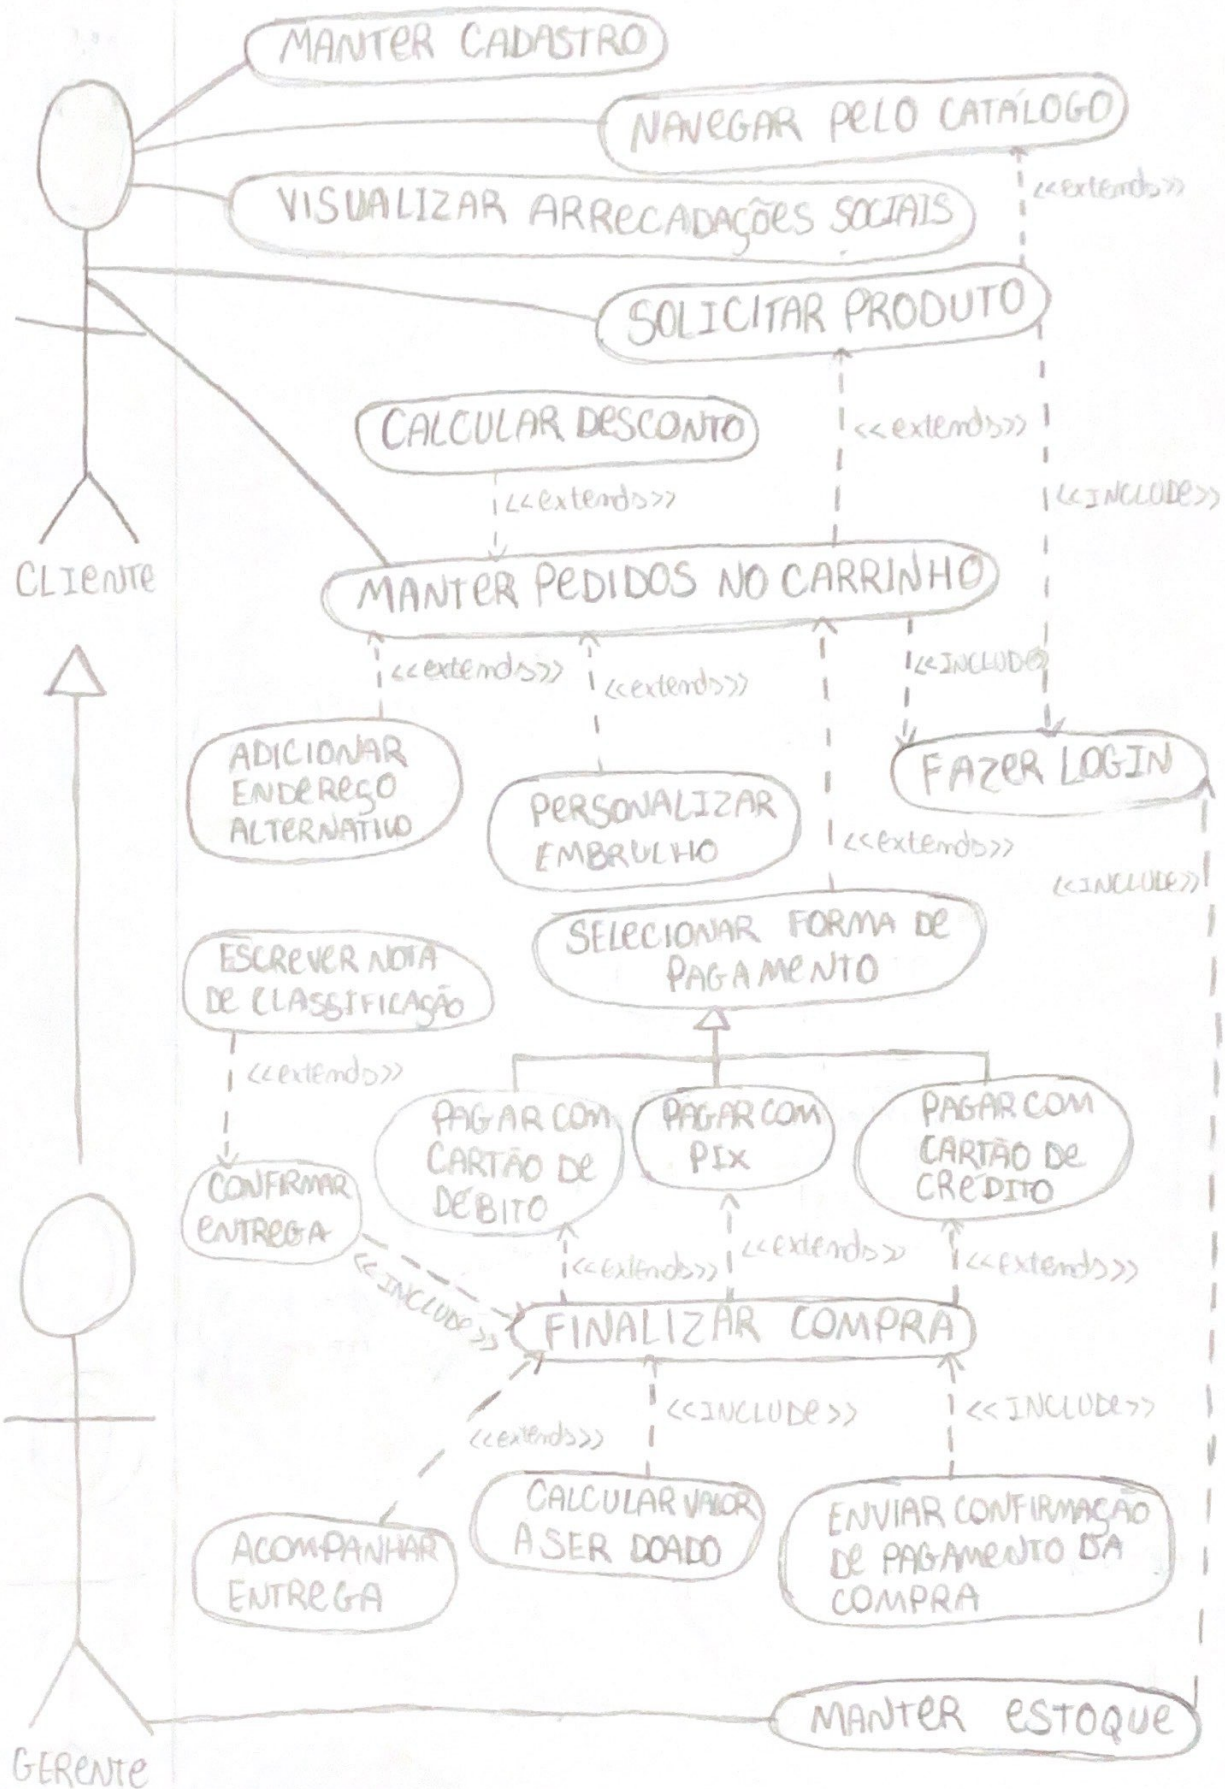 MANTER CADASTRO
NAVEGAR PELO CATÁLOGO
<<extends>>
VISUALIZAR ARRECADAÇÕES SOCIAIS
SOLICITAR PRODUTO
CALCULAR DESCONTO
<<extends>>
<<extends>>
<<INCLUDE>>
CLIENTE
MANTER PEDIDOS NO CARRINHO
<<extends>>
<<extends>>
<<INCLUDE>>
ADICIONAR
ENDEREÇO
ALTERNATIVO
PERSONALIZAR
EMBRULHO
FAZER LOGIN
<<extends>>
<<INCLUDE>>
ESCREVER NOTA
DE CLASSIFICAÇÃO
SELECIONAR FORMA DE
PAGAMENTO
<<extends>>
PAGAR COM
CARTÃO DE
DÉBITO
PAGAR COM
PIX
PAGAR COM
CARTÃO DE
CRÉDITO
CONFIRMAR
ENTREGA
<<INCLUDE>>
<<extends>>
<<extends>>
<<extends>>
FINALIZAR COMPRA
<<extends>>
<<INCLUDE>>
<<INCLUDE>>
ACOMPANHAR
ENTREGA
CALCULAR VALOR
A SER DOADO
ENVIAR CONFIRMAÇÃO
DE PAGAMENTO DA
COMPRA
MANTER ESTOQUE
GERENTE